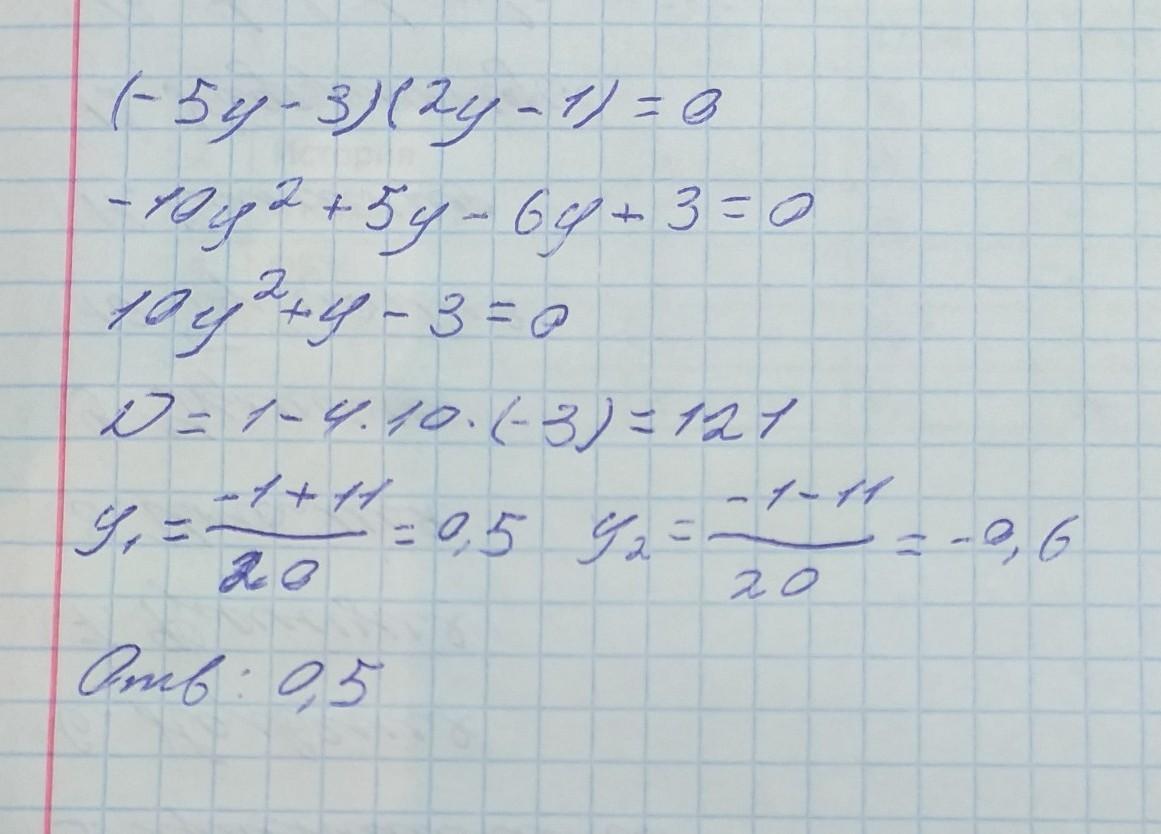 (-5y-3)(2y-1)=0
-10y²+5y-6y+3=0
10y²+y-3=0
D=1-4·10·(-3)=121
y₁=(-1+11)/20=0,5 y₂=(-1-11)/20=-0,6
Отв: 0,5